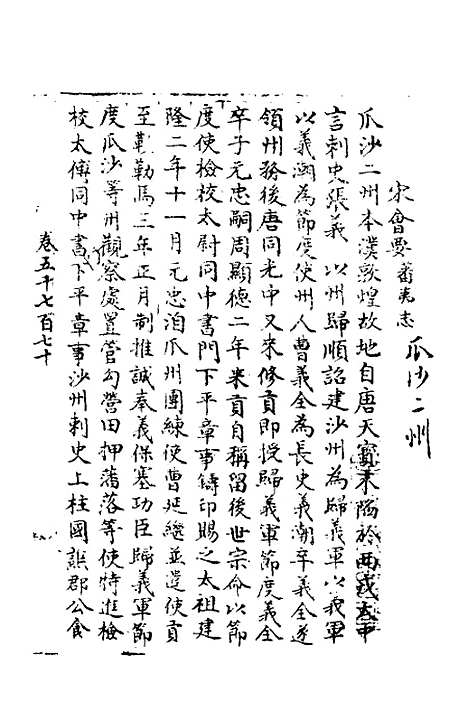 宋會要 蕃夷志
瓜沙二州
瓜沙二州本漢燉煌故地自唐天寶末陷於西戎大中
言刺史張義 以州歸順詔建沙州為歸義軍以義軍
以義潮為節度使州人曹義全為長史義潮卒義全遂
領州務後唐同光中又來修貢即授歸義軍節度義全
卒子元忠嗣周顯德二年來貢自稱留後世宗命以節
度使檢校太尉同中書門下平章事鑄印賜之太祖建
隆二年十一月元忠洎瓜州團練使曹延繼並遣使貢
至勒勒馬三年正月制推誠奉義保塞功臣歸義軍節
度瓜沙等州觀察處置管勾營田押蕃落等使特進檢
校太傅同中書下平章事沙州刺史上柱國譙郡公食
卷五千七百七十